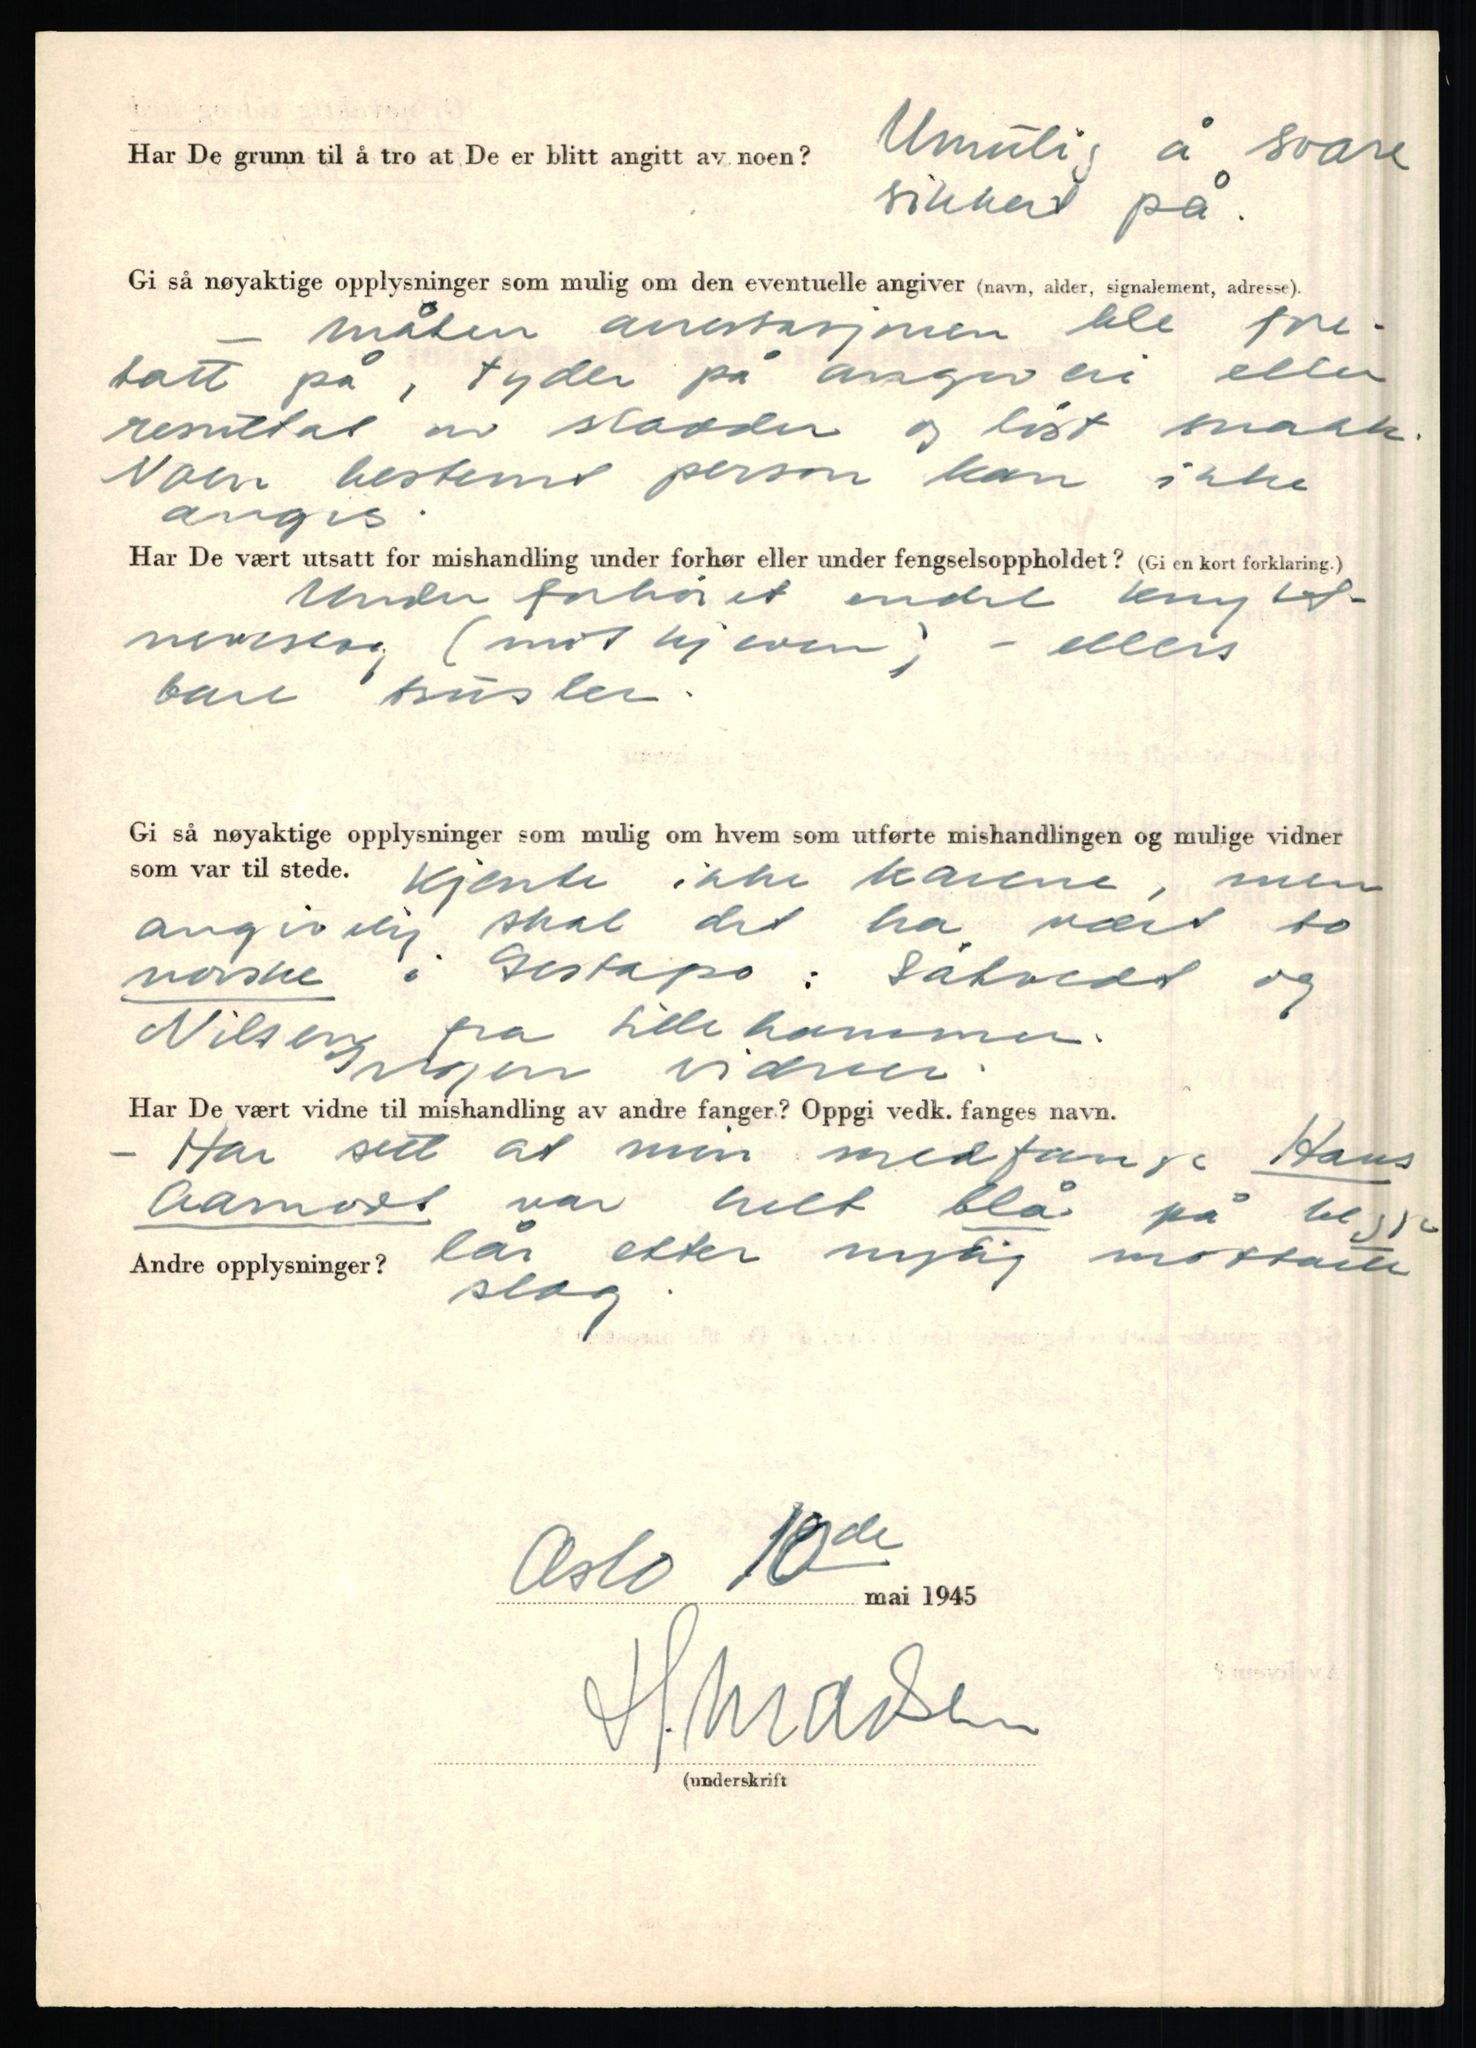 Har De grunn til å tro at De er blitt angitt av noen? Umulig å svare
sikkert på.
Gi så nøyaktige opplysninger som mulig om den eventuelle angiver (navn, alder, signalement, adresse).
– Måten arrestasjonen ble fore-
tatt på, tyder på angiveri eller
resultat av sladder og løst snakk.
Noen bestemt person kan ikke
angis.
Har De vært utsatt for mishandling under forhør eller under fengselsoppholdet? (Gi en kort forklaring.)
Under forhøret endel knytt-
neveslag (mot kjeven) – ellers
bare trusler.
Gi så nøyaktige opplysninger som mulig om hvem som utførte mishandlingen og mulige vidner
som var til stede. Kjente ikke karene, men
angivelig skal det ha vært to
norske i Gestapo: Såtvedt og
Nilsen fra Lillehammer.
Ingen vidner.
Har De vært vidne til mishandling av andre fanger? Oppgi vedk. fanges navn.
– Har sett at min medfange Hans
Aamodt var helt blå på begge
Andre opplysninger? lår etter nylig mottatte
slag.
Oslo 10de mai 1945
H. Madsen
(underskrift